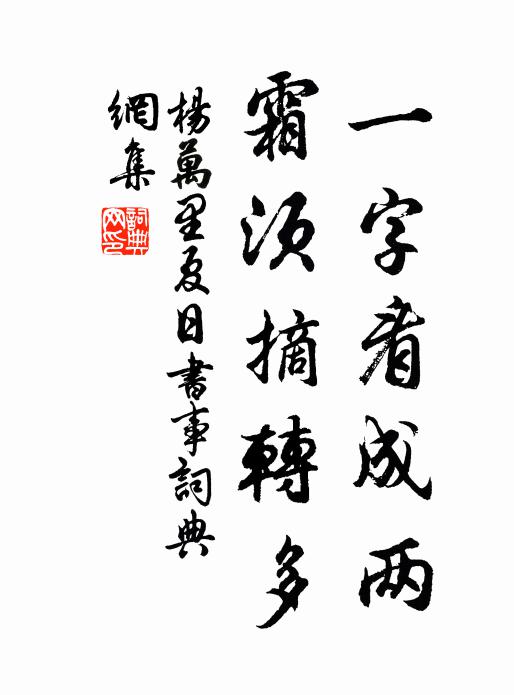 一字看成两
霜须摘轉多
楊萬里夏日書事詞典
網集
詞典网印